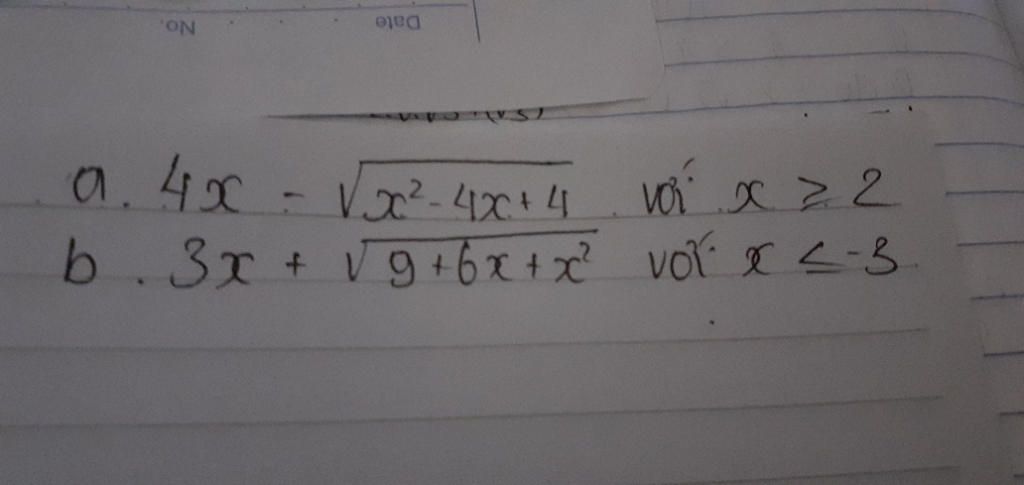 No.
Date
a. 4x - √(x² - 4x + 4) với x ≥ 2
b. 3x + √(9 + 6x + x²) với x ≤ -3